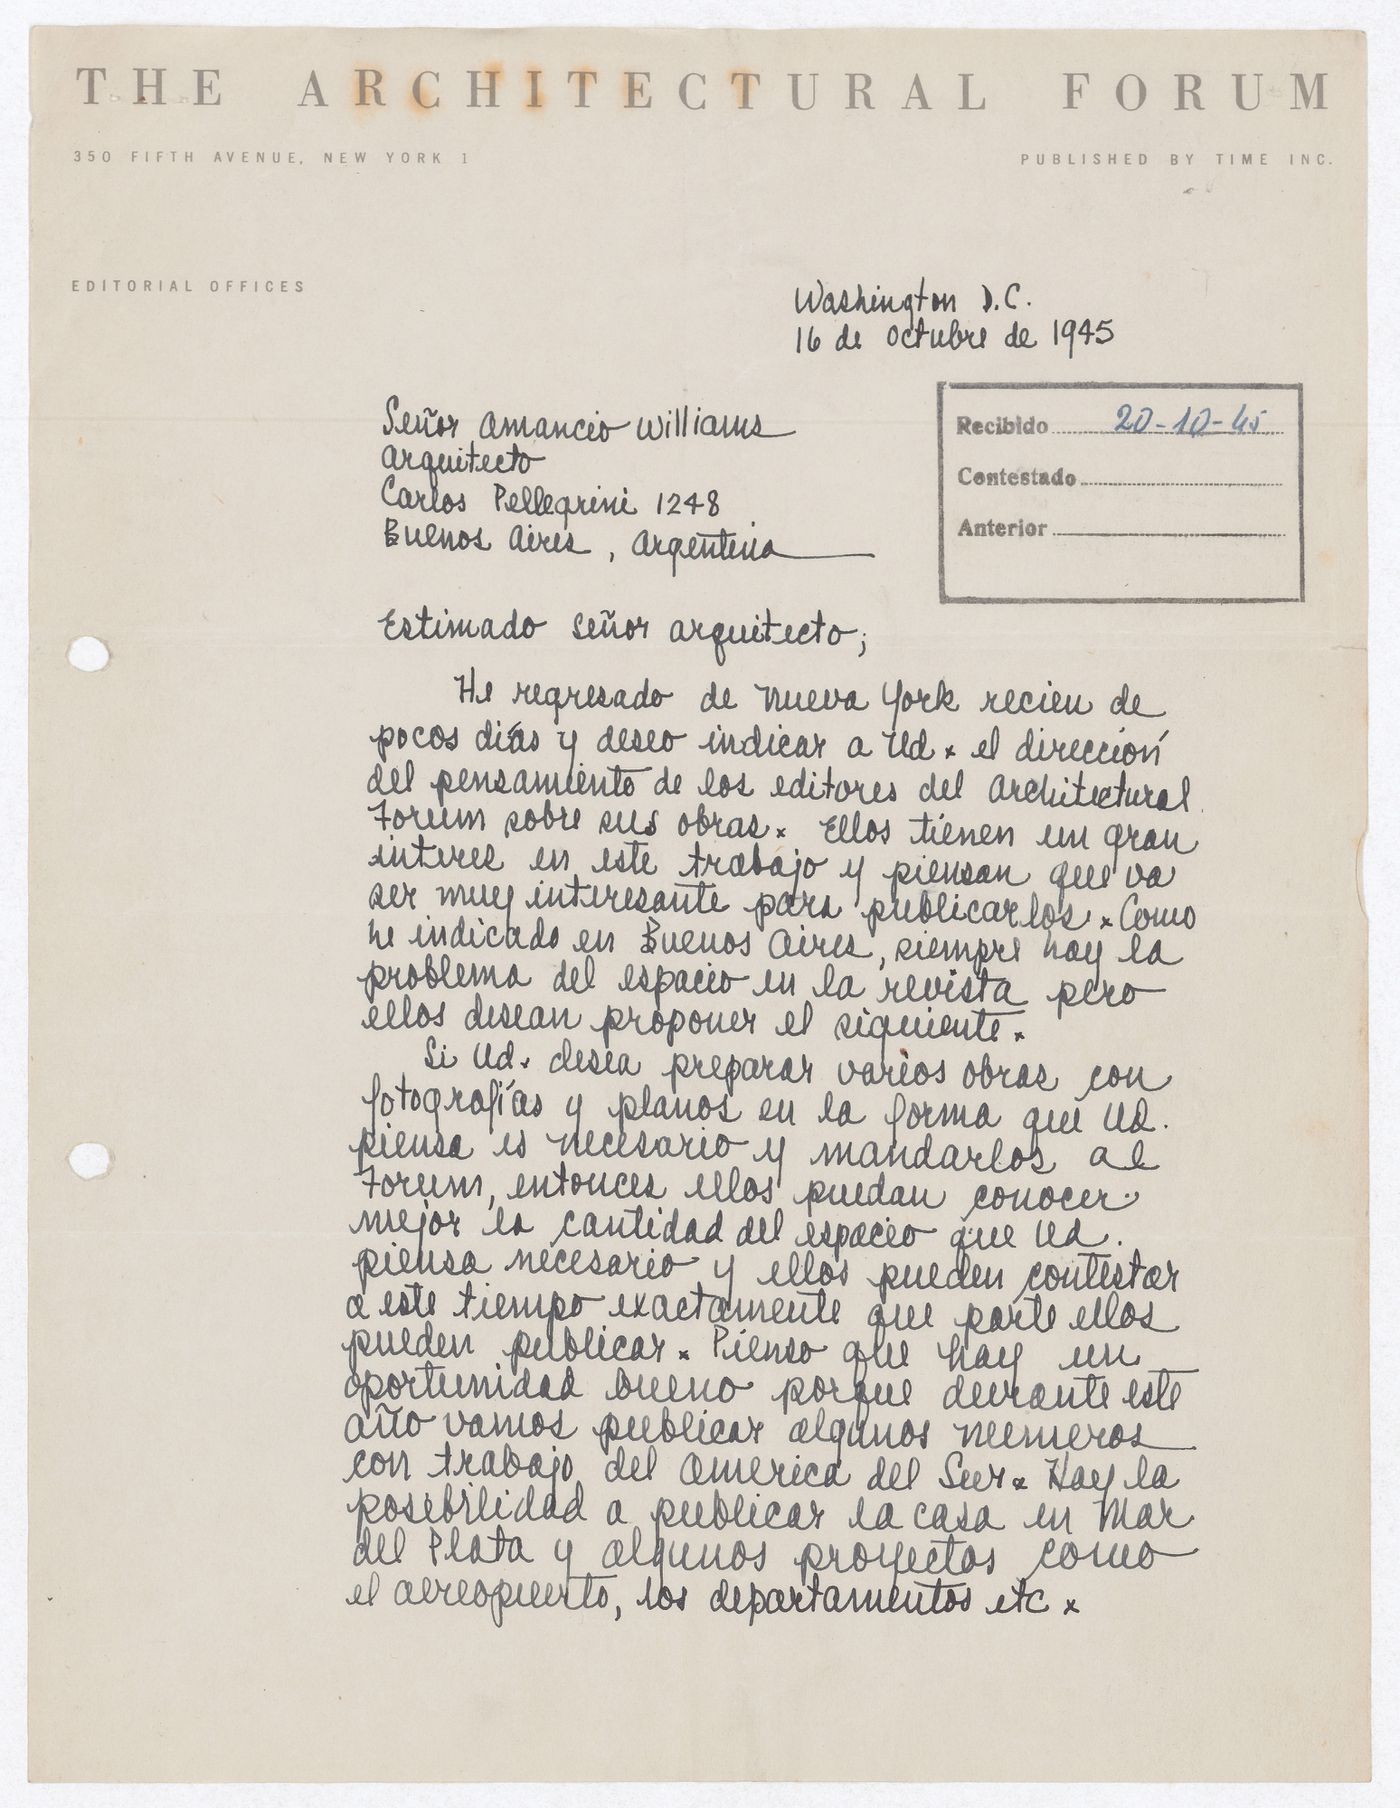 THE ARCHITECTURAL FORUM
350 FIFTH AVENUE, NEW YORK 1
PUBLISHED BY TIME INC.
EDITORIAL OFFICES
Washington D.C.
16 de Octubre de 1945
Recibido 20-10-45
Contestado
Anterior
Señor Amancio Williams
Arquitecto
Carlos Pellegrini 1248
Buenos Aires, Argentina
Estimado Señor Arquitecto;
He regresado de Nueva York recien de
pocos días y deseo indicar a Ud. el dirección
del pensamiento de los editores del Architectural
Forum sobre sus obras. Ellos tienen un gran
interes en este trabajo y piensan que va
ser muy interesante para publicarlos. Como
he indicado en Buenos Aires, siempre hay la
problema del espacio en la revista pero
ellos desean proponer el siguiente.
Si Ud. desea preparar varios obras con
fotografías y planos en la forma que Ud.
piensa es necesario y mandarlos al
Forum, entonces ellos puedan conocer
mejor la cantidad del espacio que Ud.
piensa necesario y ellos pueden contestar
a este tiempo exactamente que parte ellos
pueden publicar. Pienso que hay un
oportunidad bueno porque durante este
año vamos publicar algunos numeros
con trabajo del America del Sur. Hay la
posibilidad a publicar la casa en Mar
del Plata y algunos proyectos como
el aereopuerto, los departamentos etc.